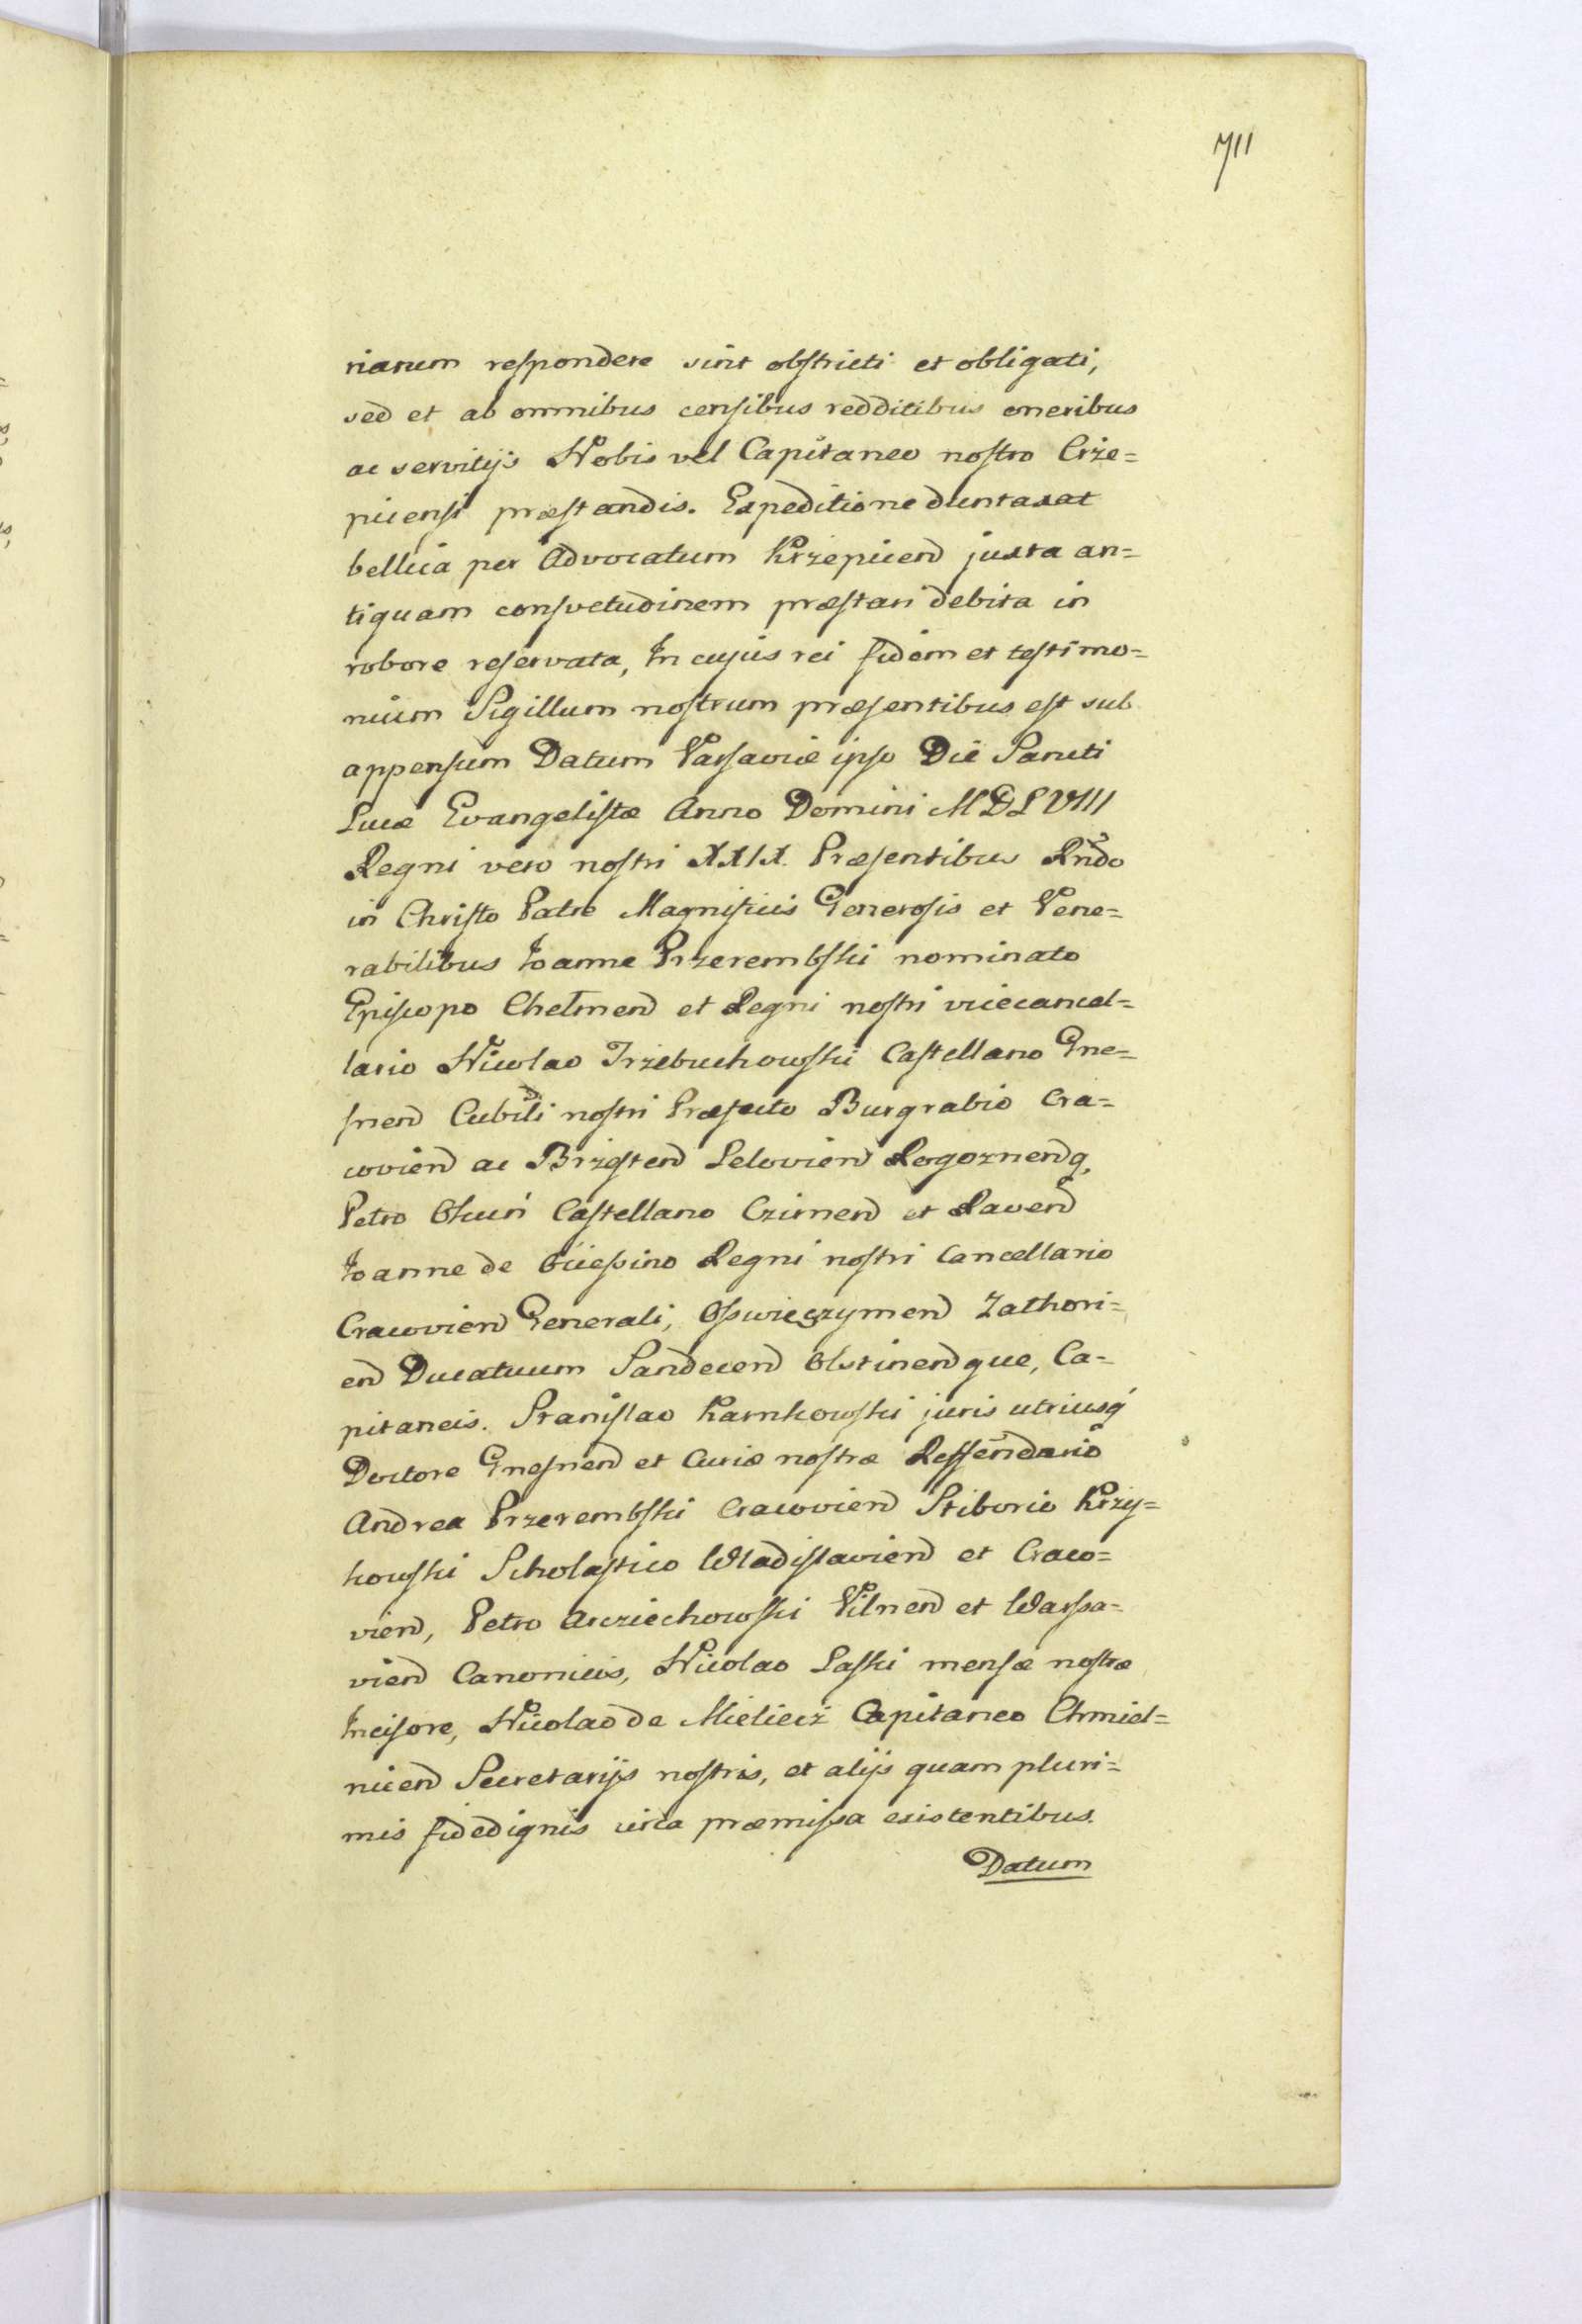 711
riarum respondere sint obstricti et obligati,
sed et ab omnibus censibus redditibus oneribus
ac servitijs Nobis vel Capitaneo nostro Crze=
picensi præstandis. Expeditione duntaxat
bellica per Advocatum Krzepicen̄ juxta an=
tiquam consvetudinem præstari debita in
robore reservata, In cujus rei fidem et testimo=
nium Sigillum nostrum præsentibus est sub
appensum Datum Varsaviæ ipso Die Sancti
Lucæ Evangelistæ Anno Domini MDLVIII
Regni vero nostri XXIX. Præsentibus Rndo
in Christo Patre Magnificis Generosis et Vene=
rabilibus Joanne Przerembski nominato
Episcopo Chelmen̄ et Regni nostri vicecancel=
lario Nicolao Trzebuchowski Castellano Gne=
snen̄ Cubili nostri Præfecto Burgrabio Cra=
covien̄ ac Brzesten̄ Lelovien̄ Rogoznen̄q,
Petro Okuń Castellano Czirnen̄ et Raven̄
Joanne de Ocießino Regni nostri Cancellario
Cracovien̄ Generali, Oswieczymen̄ Zathori=
en̄ Ducatuum Sandecen̄ Olstinen̄que, Ca=
pitaneis. Stanislao Karnkowski juris utriusq́
Doctore Gnesnen̄ et Curiæ nostræ Reffendario
Andrea Przerembski Cracovien̄ Stiborio Krzy=
kowski Scholastico Wladislavien̄ et Craco=
vien̄, Petro Arcziechowski Vilnen̄ et Warsa=
vien̄ Canonicis, Nicolao Laski mensæ nostræ
Incisore, Nicolao de Mieliecz Capitaneo Chmiel=
nicen̄ Secretarijs nostris, et alijs quam pluri=
mis fidedignis circa præmissa existentibus.
Datum